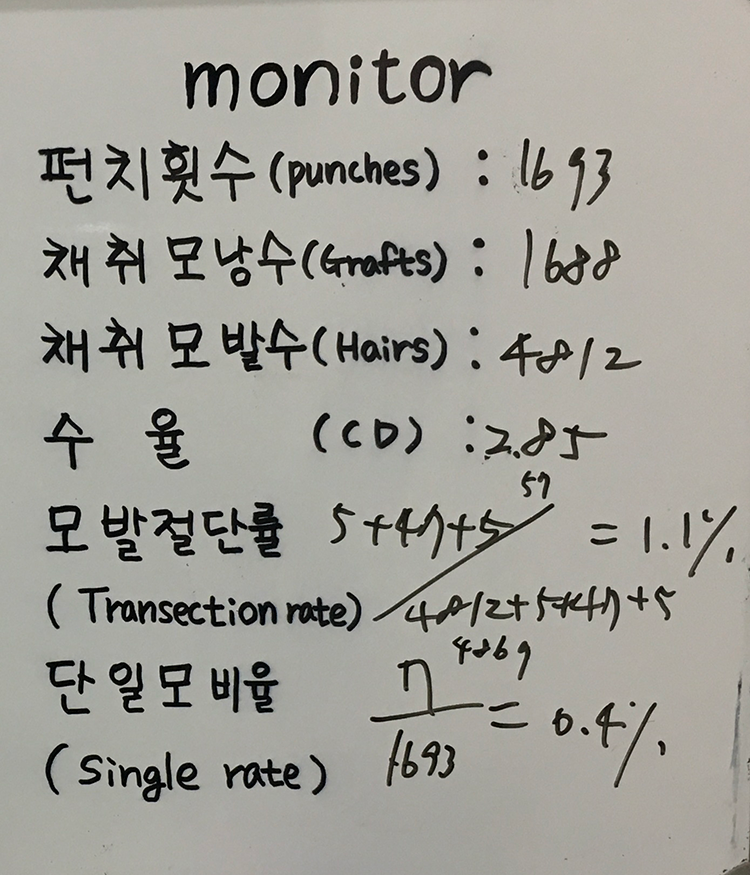 monitor
펀치횟수(punches) : 1693
채취모낭수(Grafts) : 1688
채취모발수(Hairs) : 4812
수 율 (CD) : 2.85
57
모발절단률 5+47+5 = 1.1%
(Transection rate) 4812+5+47+5
4869
단일모비율 7
= 0.4%
(Single rate) 1693